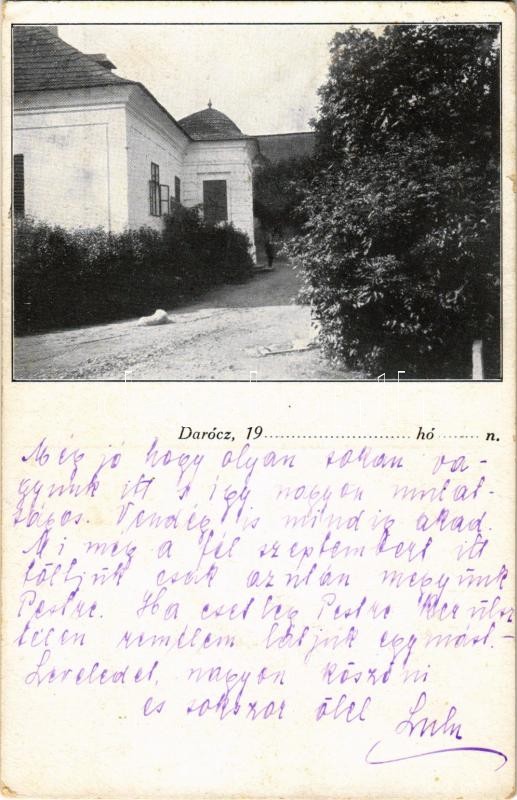 Darócz, 19.......................... hó ........ n.
Még jó hogy olyan sokan va-
gyunk itt s így nagyon mulat-
ságos. Vendég is mindig akad.
Mi még a fél szeptembert itt
töltjük csak azután megyünk
Pestre. Ha esetleg Pestre kerülsz
télen remélem látjuk egymást. -
Leveledet, nagyon köszöni
és sokszor ölel
Lulu